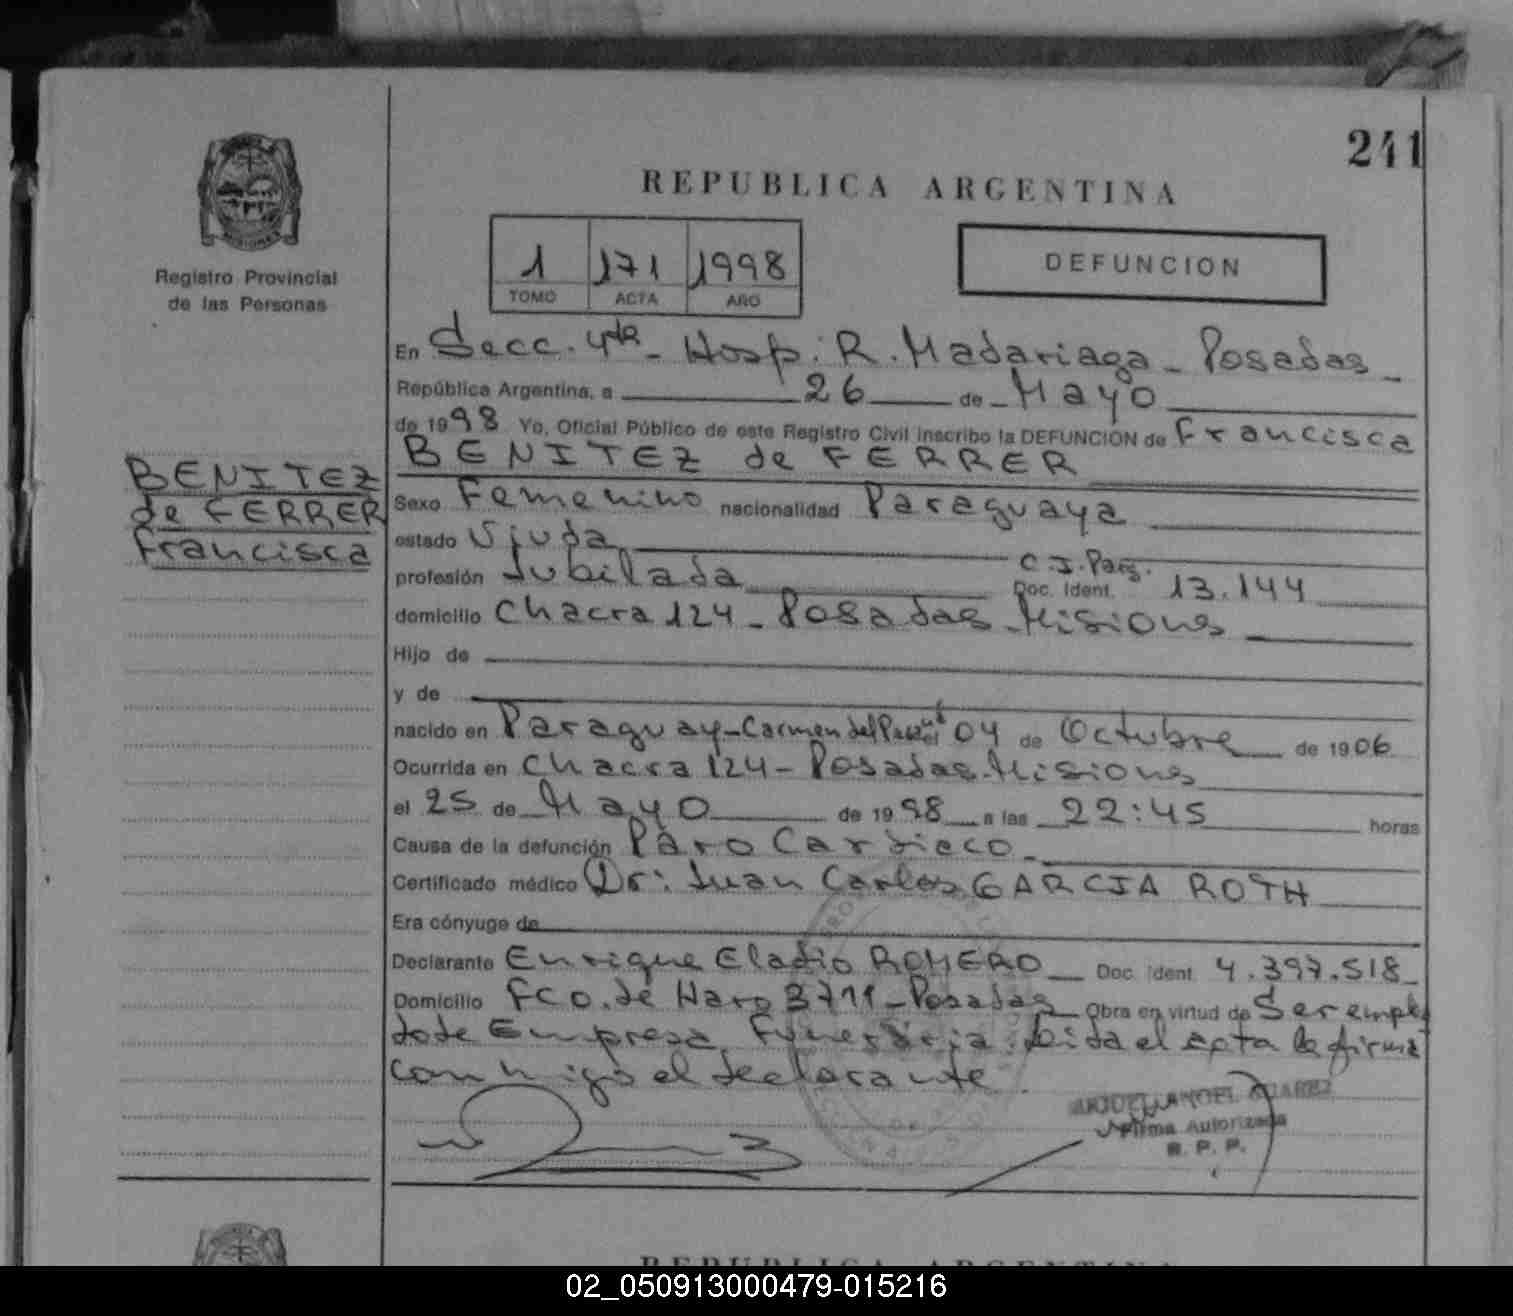 241
REPUBLICA ARGENTINA
MISIONES
Registro Provincial
de las Personas
1 171 1998
TOMO ACTA AÑO
DEFUNCION
En Secc. 4ta - Hosp. R. Madariaga - Posadas -
República Argentina, a 26 de Mayo
de 1998 Yo, Oficial Público de este Registro Civil inscribo la DEFUNCION de Francisca
BENITEZ de FERRER
BENITEZ
de FERRER
Francisca
Sexo Femenino nacionalidad Paraguaya
estado Viuda
profesión Jubilada C.I. Parg. Doc. Ident. 13.144
domicilio Chacra 124 - Posadas - Misiones
Hijo de
y de
nacido en Paraguay - Carmen del Paraná el 04 de Octubre de 1906
Ocurrida en Chacra 124 - Posadas - Misiones
el 25 de Mayo de 1998 a las 22:45 horas
Causa de la defunción Paro Cardiaco -
Certificado médico Dr: Juan Carlos GARCIA ROTH
Era cónyuge de
Declarante Enrique Eladio ROMERO Doc. Ident. 4.397.518
Domicilio Fco. de Haro 3711 - Posadas Obra en virtud de Ser emplea
do de Empresa Funeraria. Leida el acta la firma
conmigo el declarante
Firma Autorizada
R. P. P.
REPUBLICA ARGENTINA
02_050913000479-015216